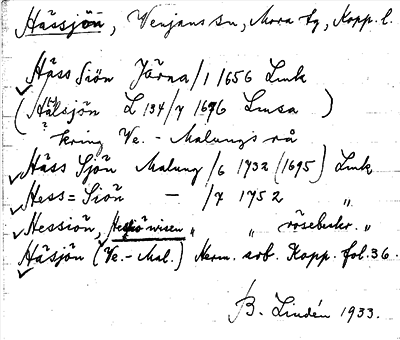 Hässjön, Venjans sn, Mora tg, Kopp. l.
Häss Siön Järna/1 1656 Lmk
(Hälsjön L 134/7 1696 Lmsa )
? kring Ve. - Malungs rå
Häss Sjön Malung/6 1732 (1695) Lmk
Hess = Siön — /7 1752 "
Hessiön, Hessiöwisen " " rösebeskr. "
Häsjön (Ve.- Mal.) Herm. arb. Kopp. fol. 36.
B. Lindén 1933.